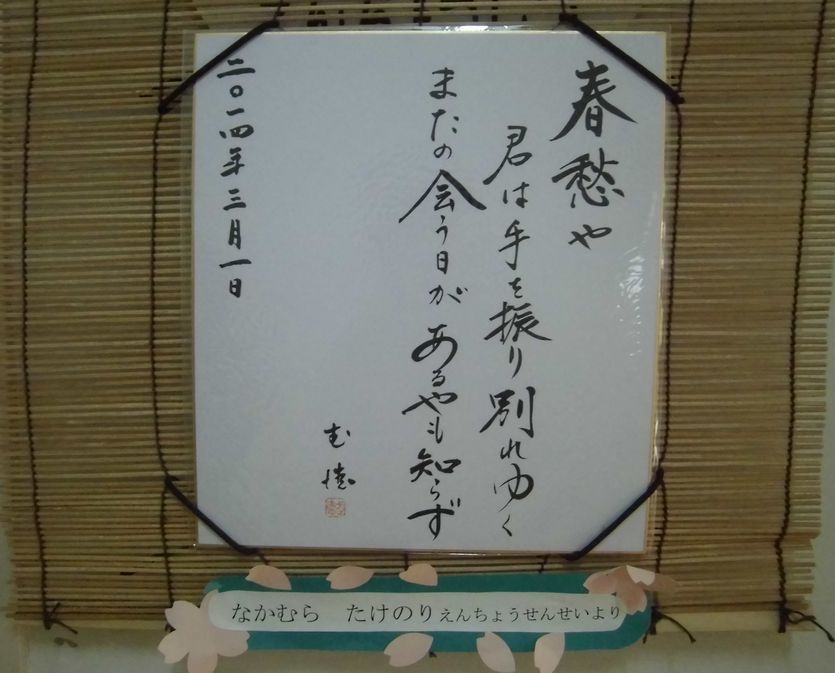 春愁や
君は手を振り別れゆく
またの会う日があるやも知らず
二〇一四年三月一日
なかむら　たけのりえんちょうせんせいより